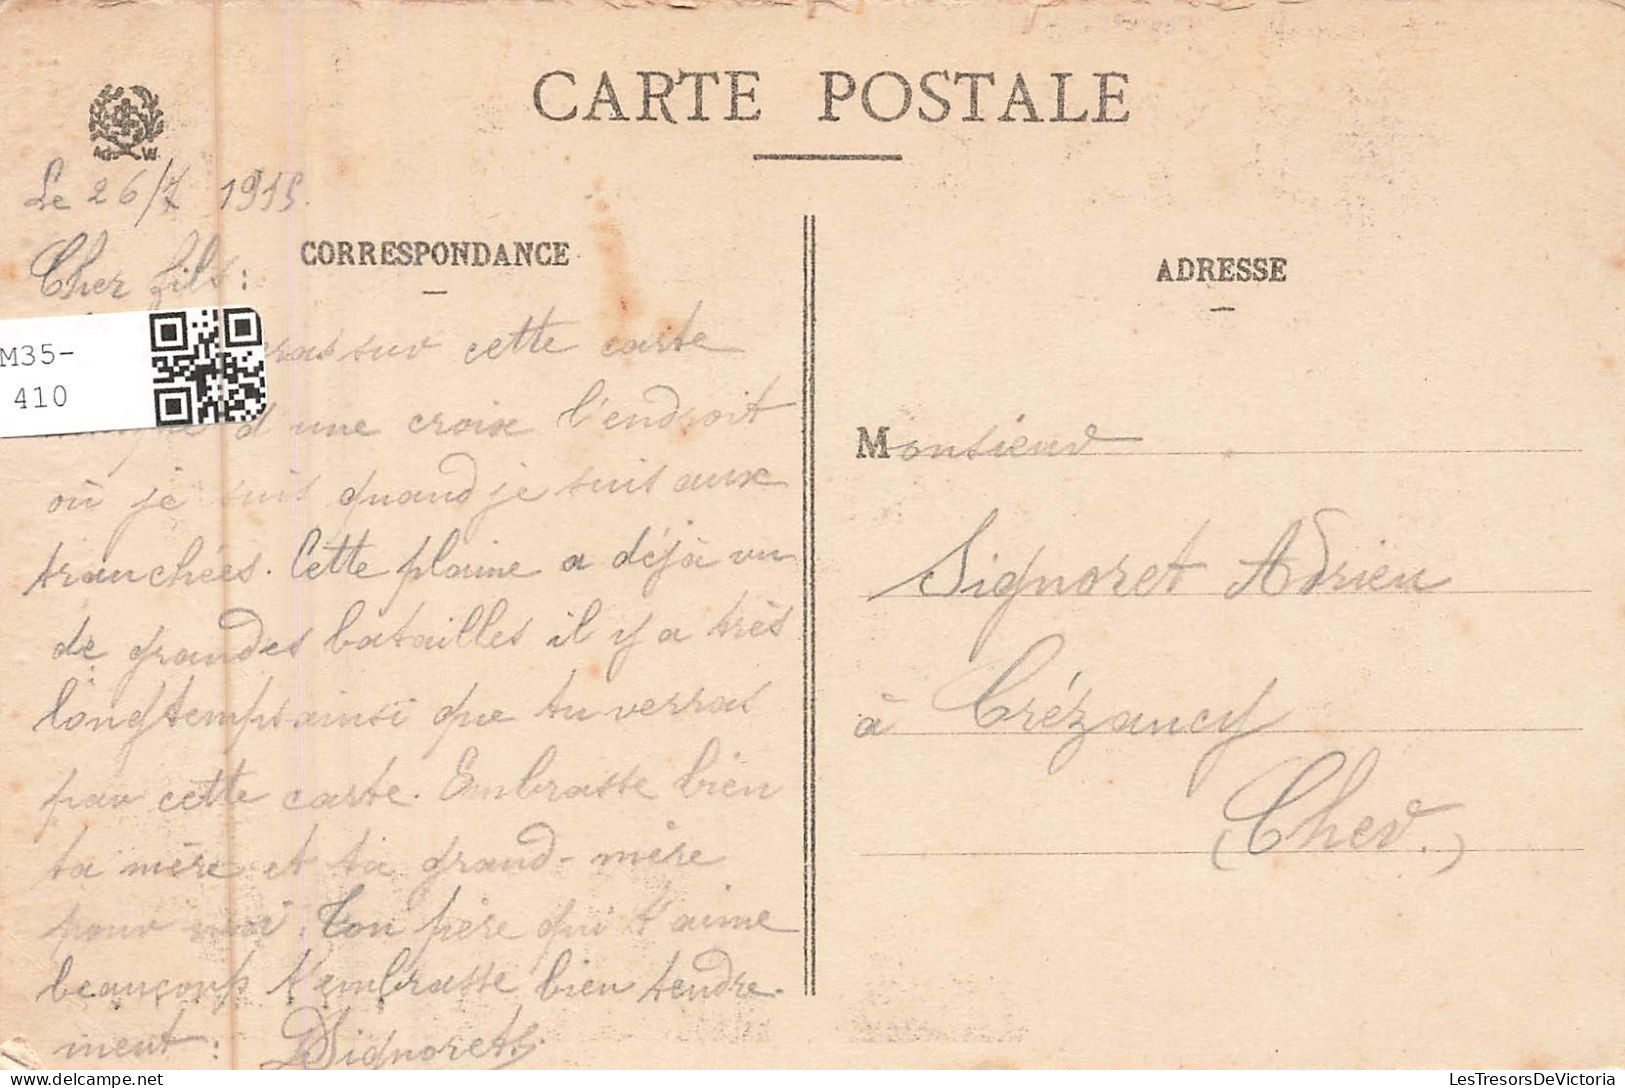 CARTE POSTALE
Le 26/7 1915.
CORRESPONDANCE
Cher fils:
M35-
410
sur cette carte
d une croix l'endroit
où je suis quand je suis aux
tranchées. Cette plaine a déjà vu
de grandes batailles il y a très
longtemps ainsi que tu verras
par cette carte. Embrasse bien
ta mère et ta grand-mère
pour moi. Ton père qui t'aime
beaucoup t'embrasse bien tendre-
ment: Signoret
ADRESSE
Monsieur
Signoret Adrien
à Crézancy
(Cher.)
LesTresorsDeVictoria